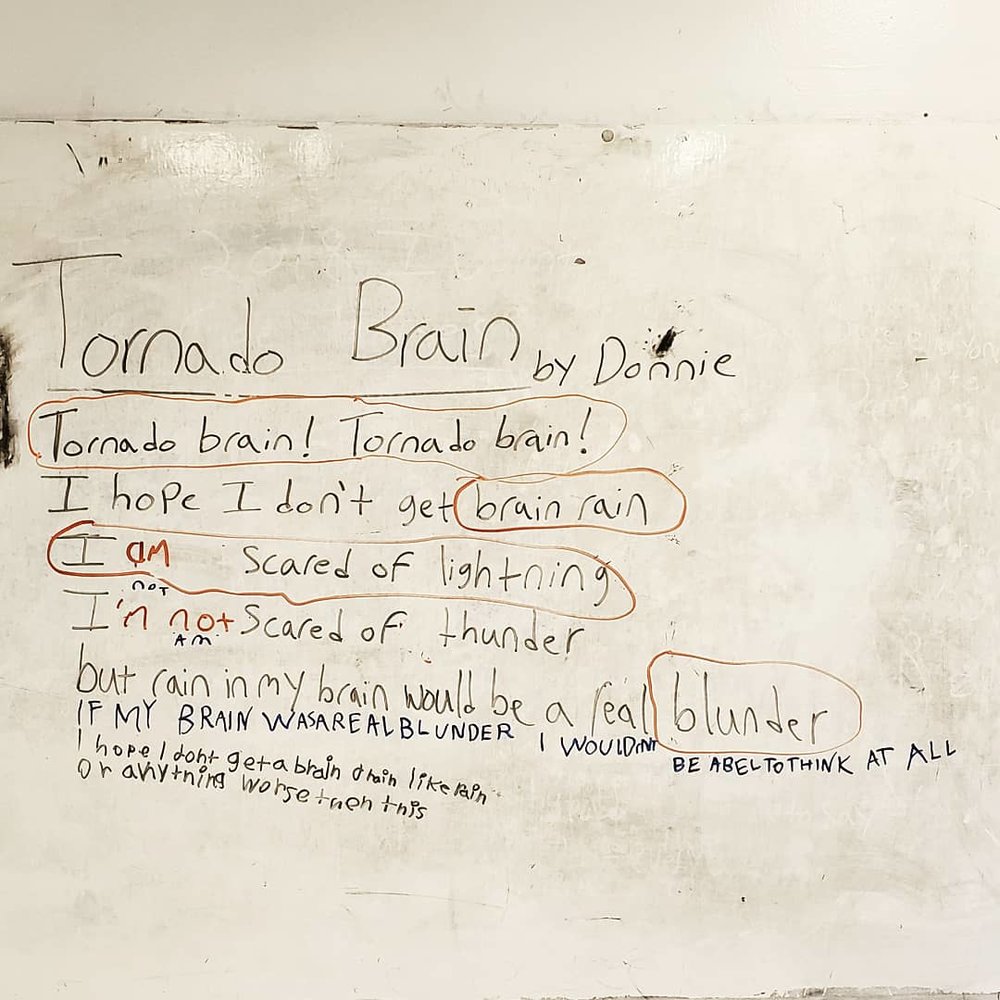 Tornado Brain by Donnie
Tornado brain! Tornado brain!
I hope I don't get brain rain
I am scared of lightning
not
I'm not scared of thunder
AM
but rain in my brain would be a real blunder
IF MY BRAIN WASAREALBLUNDER I WOULDNT BE ABELTOTHINK AT ALL
I hope I dont get a brain drain like rain
Or anything worse then this